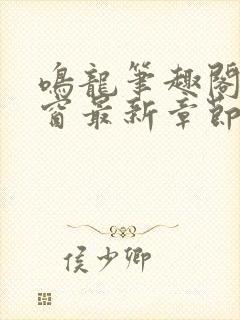 鳴龍筆趣閣
窗最新章節
侯少卿